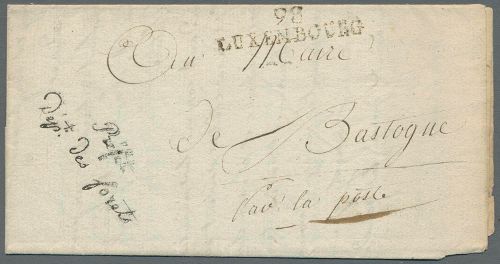 98
LUXEMBOURG
Au Maire
de Bastogne
Par la poste
Préfet
Dép.t des forêts